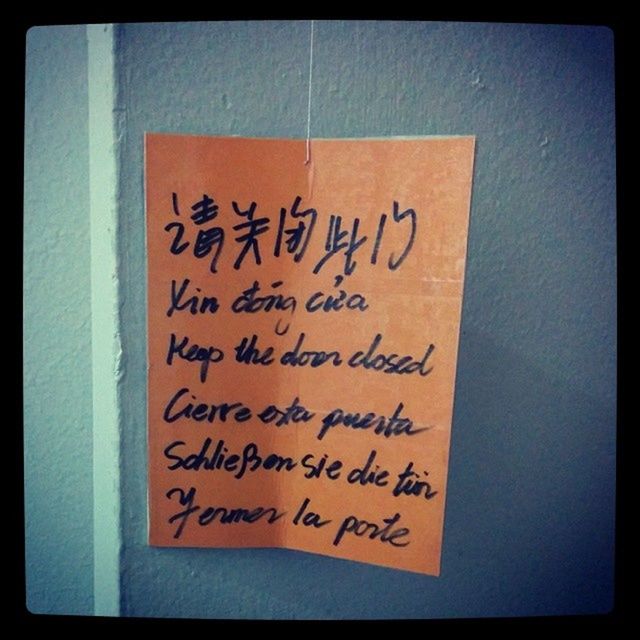 请关闭此门
Xin đóng cửa
Keep the door closed
Cierre esta puerta
Schließen sie die tür
Fermer la porte